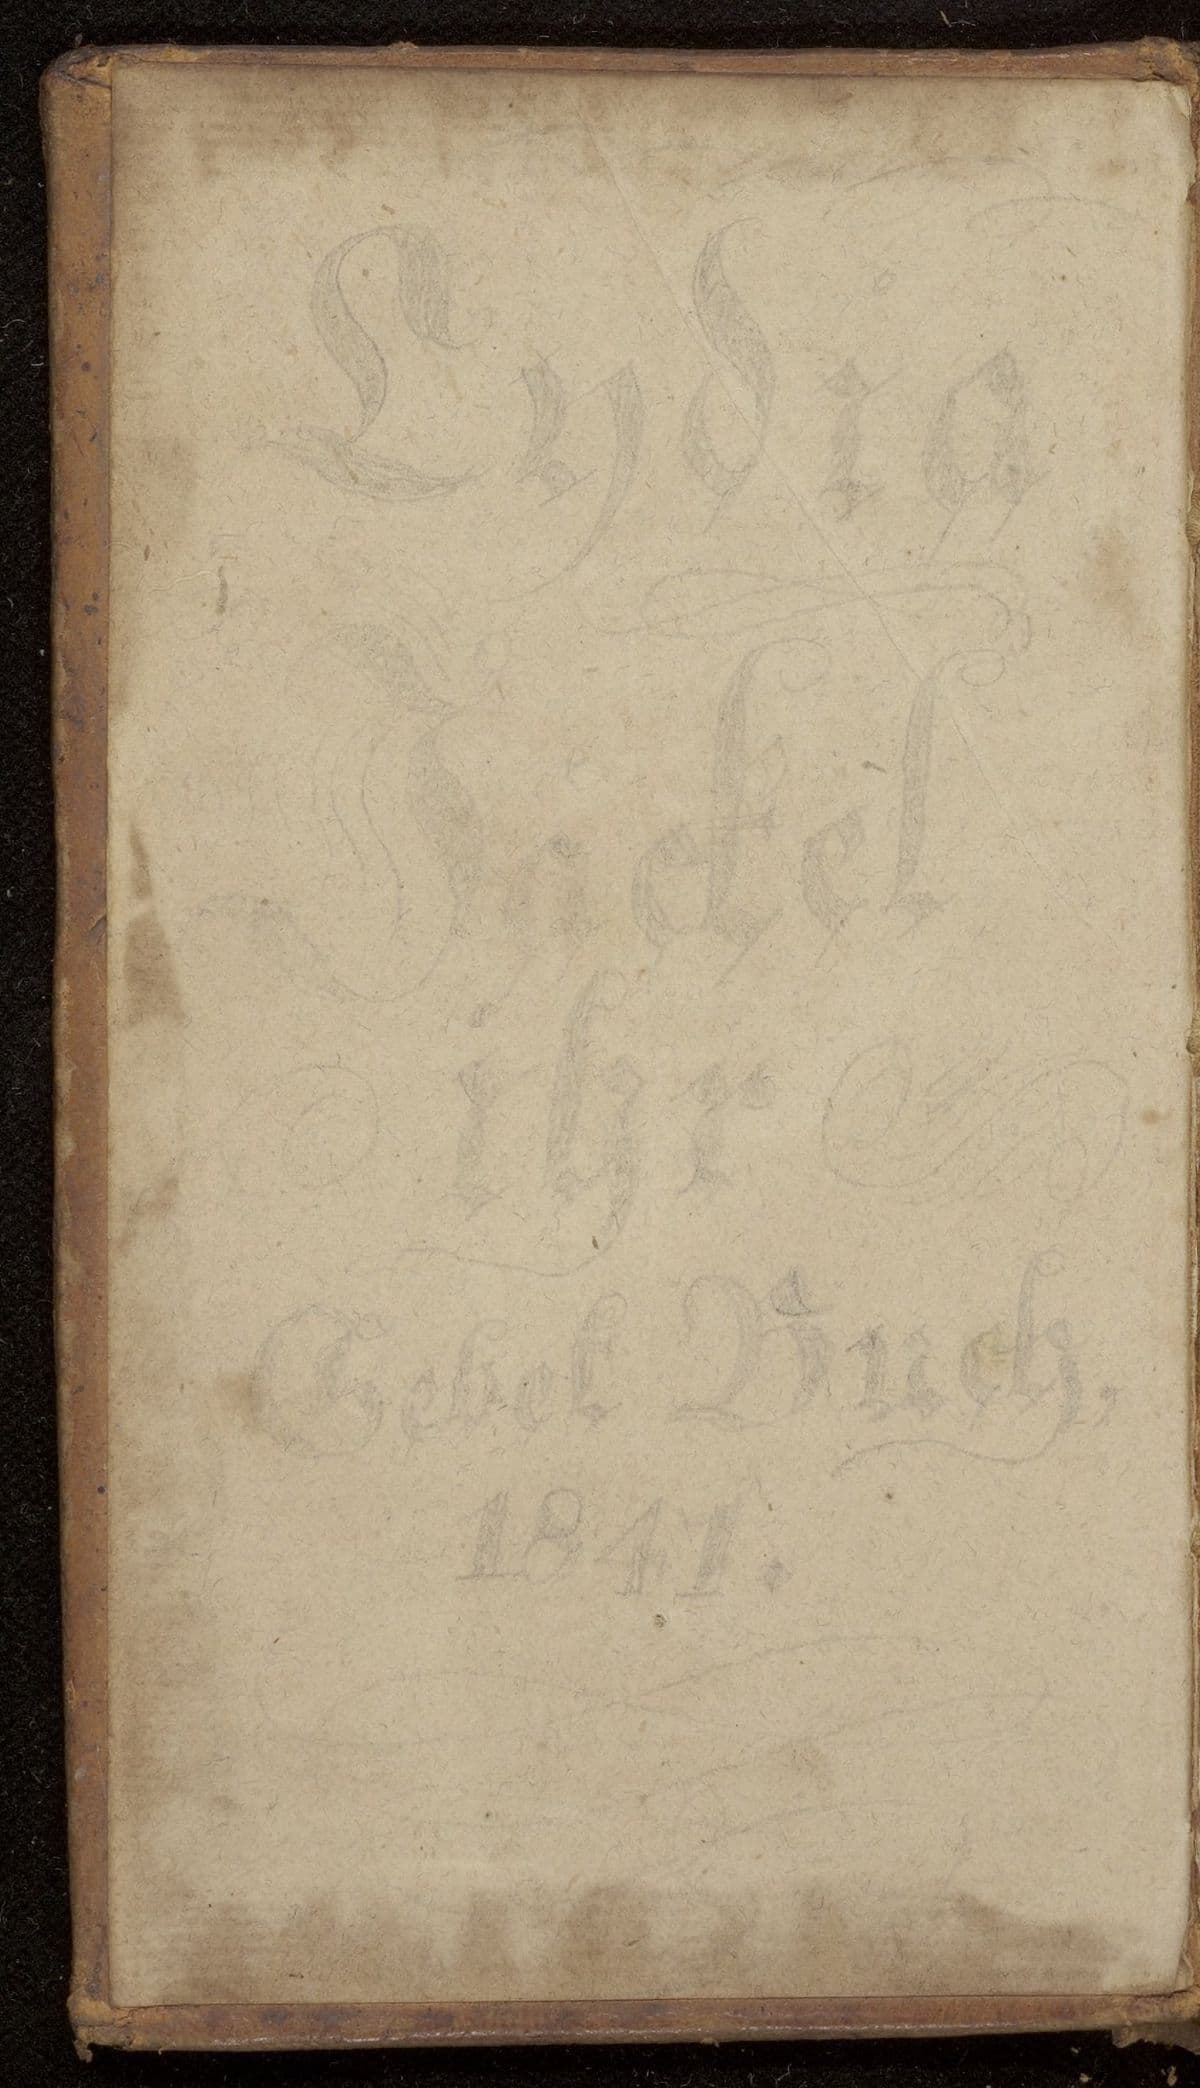 Lydia
Jäckel
ihr
Gebet Buch,
1841.